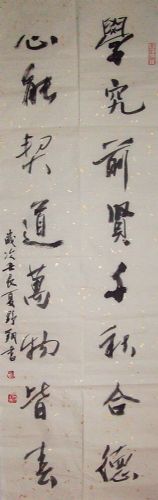 學究前賢千秋合德
心能契道萬物皆春
歲次壬辰夏
書